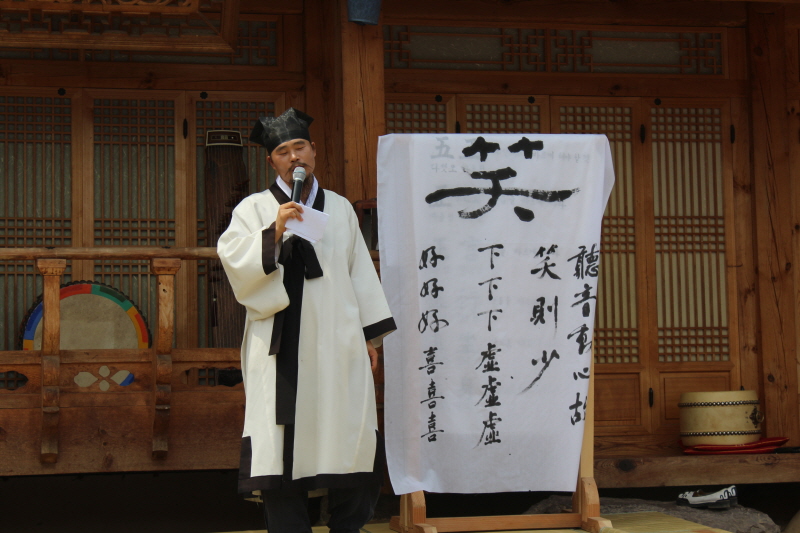 笑
聽音動心故
笑則少
下下下虛虛虛
好好好喜喜喜
五